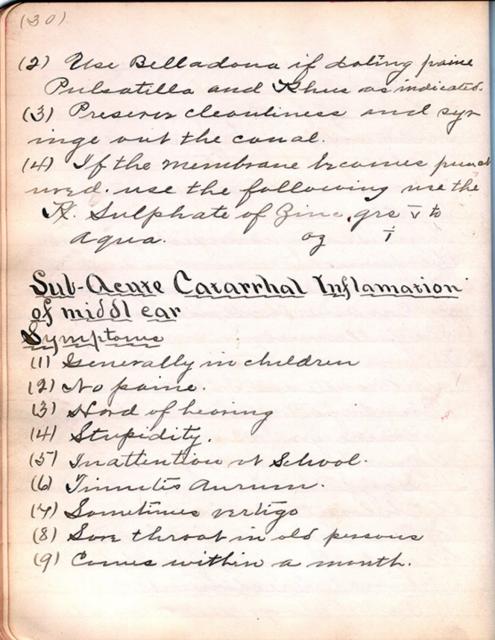 (30)
(2) Use Belladona if doting paine
Pulsatilla and Rhus as indicated.
(3) Preserve cleanliness and syr
inge out the canal.
(4) If the membrane becomes punct
ured. use the following use the
Rx. Sulphate of Zinc. grs v to
aqua. oz i
Sub-Acute Catarrhal Inflamation
of middl ear
Symptoms
(1) Generally in children
(2) No paine.
(3) Hard of hearing
(4) Stupidity.
(5) Inattention at School.
(6) Tinnitis Aurum.
(7) Sometimes vertigo
(8) Sore throat in old persons
(9) Comes within a month.